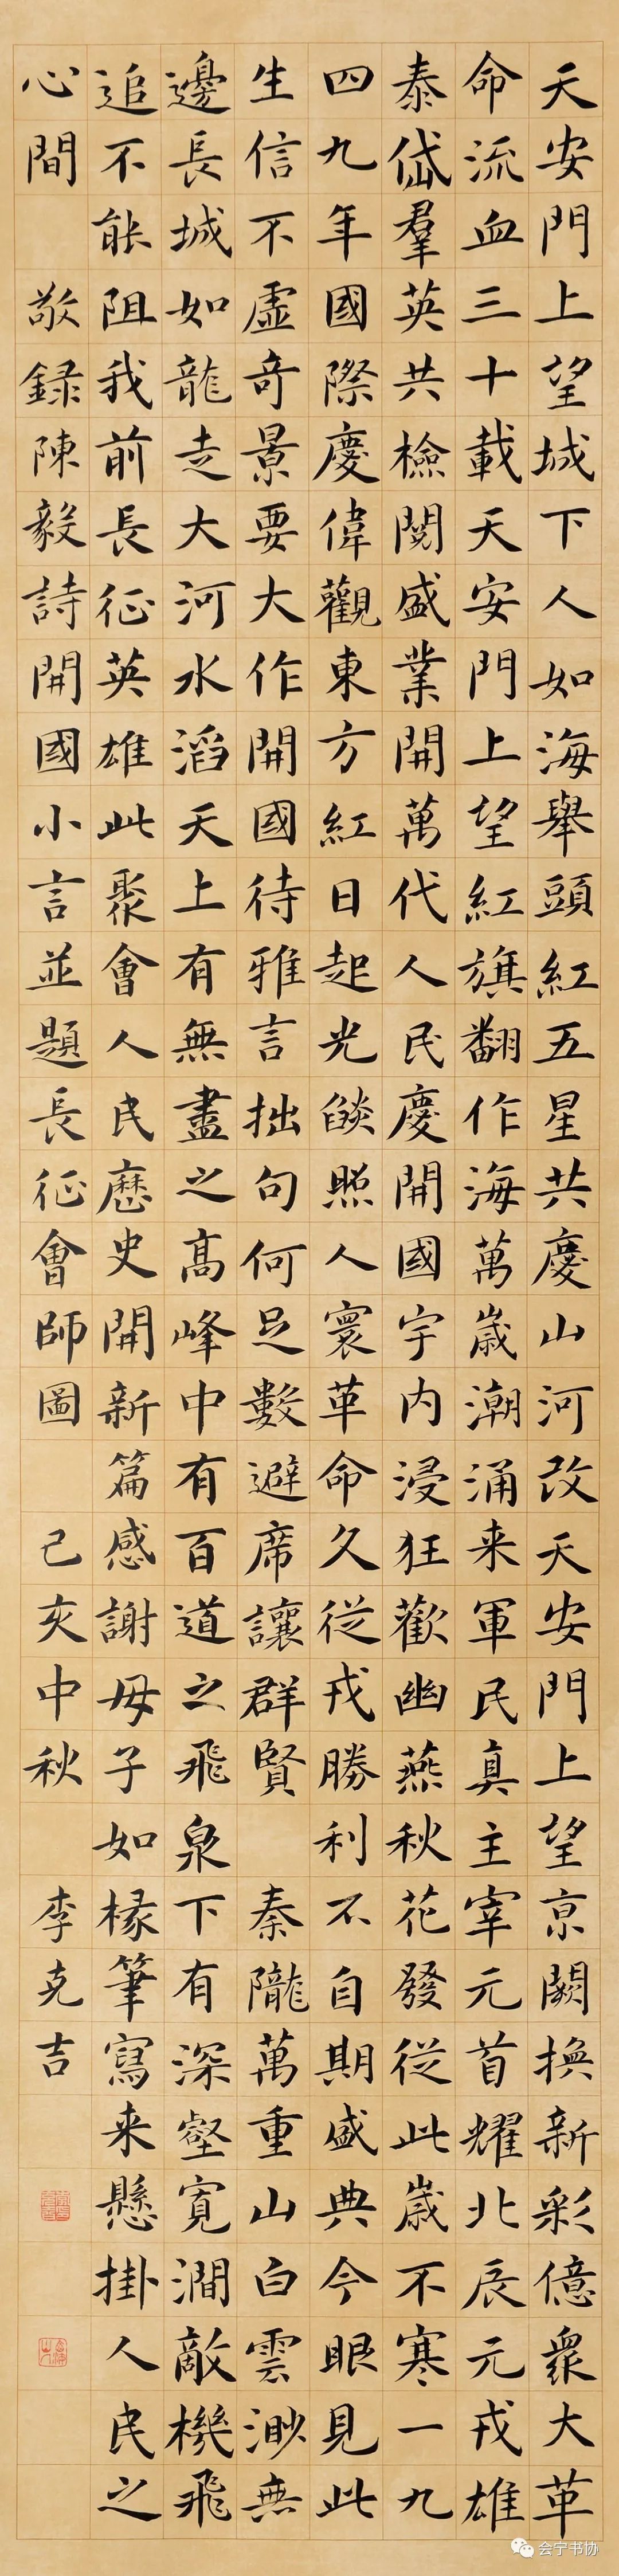 天安門上望城下人如海舉頭紅五星共慶山河改天安門上望京闕換新彩億衆大革
命流血三十載天安門上望紅旗翻作海萬歲潮涌来軍民真主宰元首耀北辰元戎雄
泰岱羣英共檢閱盛業開萬代人民慶開國宇内浸狂歡幽燕秋花發從此歲不寒一九
四九年國際慶偉觀東方紅日起光燄照人寰革命久從戎勝利不自期盛典今眼見此
生信不虛奇景要大作開國待雅言拙句何足數避席讓群賢 秦隴萬重山白雲渺無
邊長城如龍走大河水滔天上有無盡之高峰中有百道之飛泉下有深壑寬澗敵機飛
追不能阻我前長征英雄此聚會人民歷史開新篇感謝毋子如椽筆寫来懸掛人民之
心間 敬録陳毅詩開國小言並題長征會師圖 己亥中秋 李克吉
会宁书协